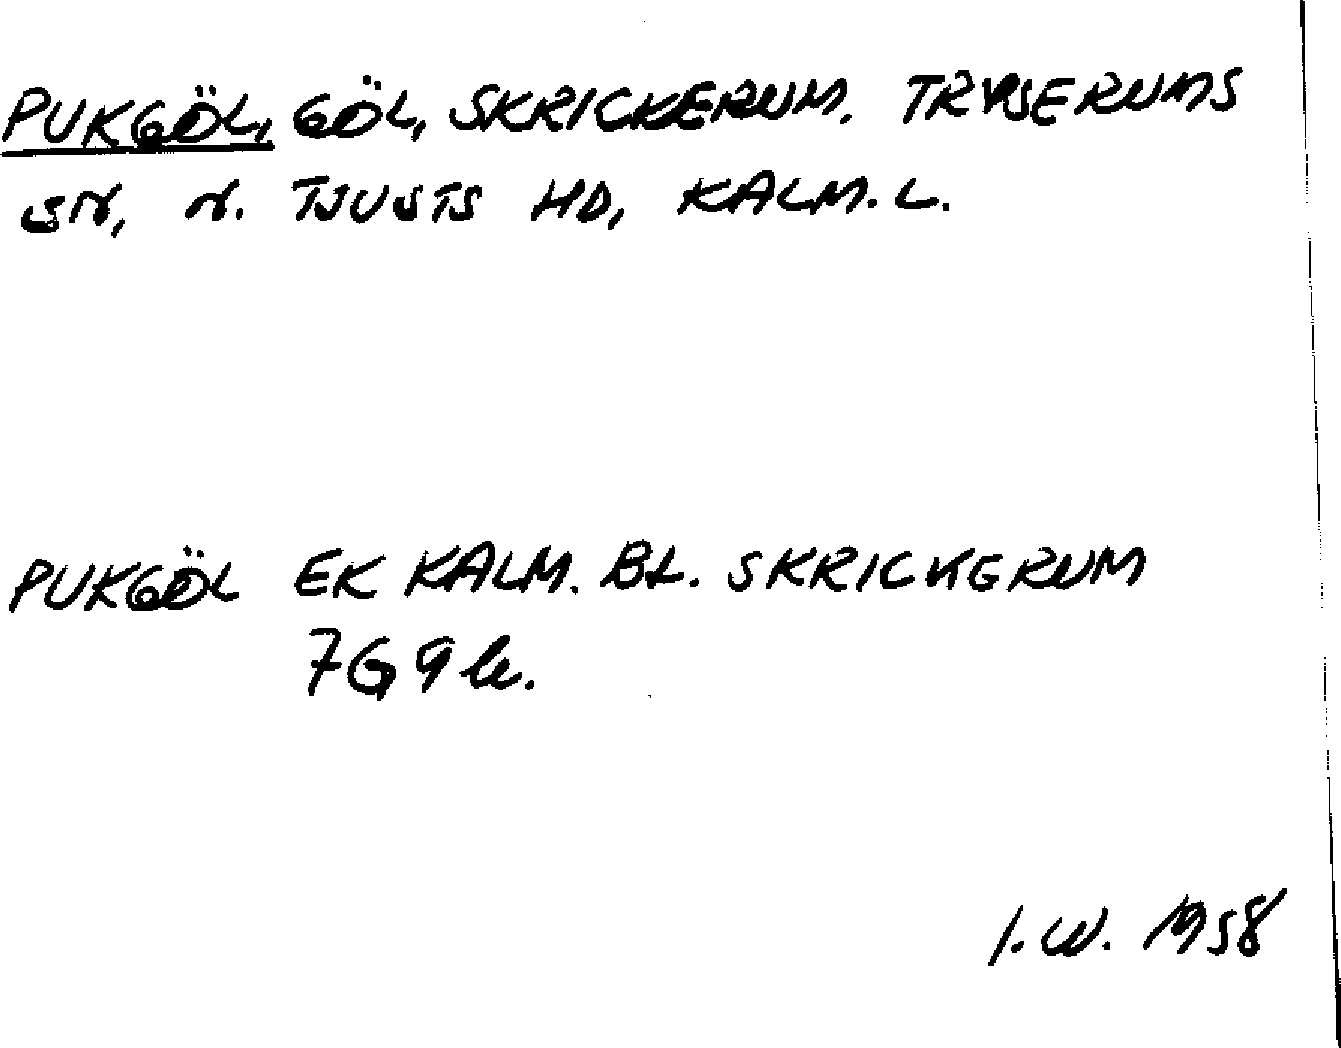 PUKGÖL, GÖL, SKRICKERUM. TRYSERUMS
SN, N. TJUSTS HD, KALM. L.
PUKGÖL EK KALM. BL. SKRICKERUM
7G 9
I. W. 1958